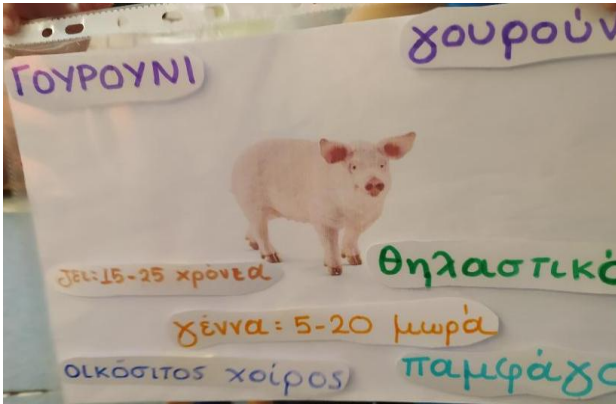 ΓΟΥΡΟΥΝΙ
γουρούν
ζει: 15-25 χρόνια
θηλαστικό
γέννα: 5-20 μωρά
οικόσιτος χοίρος
παμφάγο